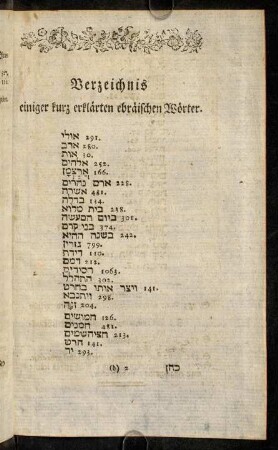 Verzeichnis
einiger kurz erklärten ebräischen Wörter.
אולי 291.
ארב 280.
אות 30.
אלהים 252.
166.
ארם נהרים 228.
אשרה 481.
ברלה 154.
בית מלוא 258.
ביום המעשה 301.
בני קדם 374.
בשנה ההיא 242.
גזרין 799.
דידה 110.
דמם 212.
חסידים 1063.
התהלל 302.
ויצר אותו בחרט 141.
ויתנבא 298.
זנה 204.
חמושים 126.
חמנים 481.
213.
חרט 141.
יד 293.
(b) 2 כהן